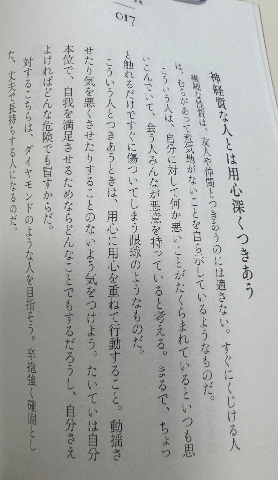 017
神経質な人とは用心深くつきあう
繊細な性質は、友人や仲間とつきあうのには適さない。すぐにくじける人
は、むらがあって勇気がないことを自らさらしているようなものだ。
こういう人は、自分に対して何か悪いことがたくらまれているといつも思
いこんでいて、会う人みんなが悪意を持っていると考える。まるで、ちょっ
と触れるだけですぐに傷ついてしまう眼球のようなものだ。
こういう人とつきあうときは、用心に用心を重ねて行動すること。動揺さ
せたり気を悪くさせたりすることのないよう気をつけよう。たいていは自分
本位で、自我を満足させるためならどんなことでもするだろうし、自分さえ
よければどんな危険でも冒すからだ。
対するこちらは、ダイヤモンドのような人を目指そう。辛抱強く確固とし
た、丈夫で長持ちする人になるのだ。